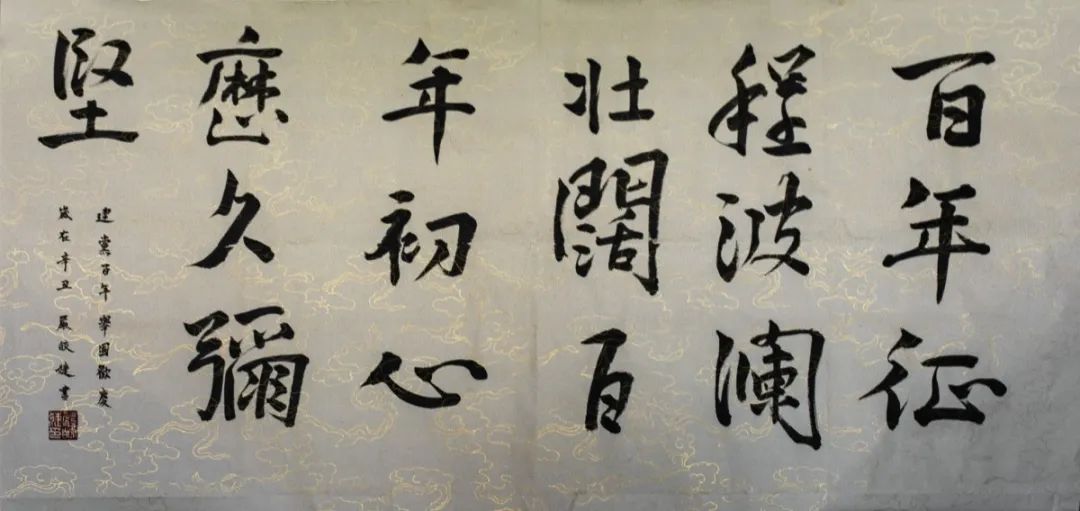 百年征
程波澜
壮阔百
年初心
歷久彌
堅
建黨百年舉國歡慶
歲在辛丑嚴校健書